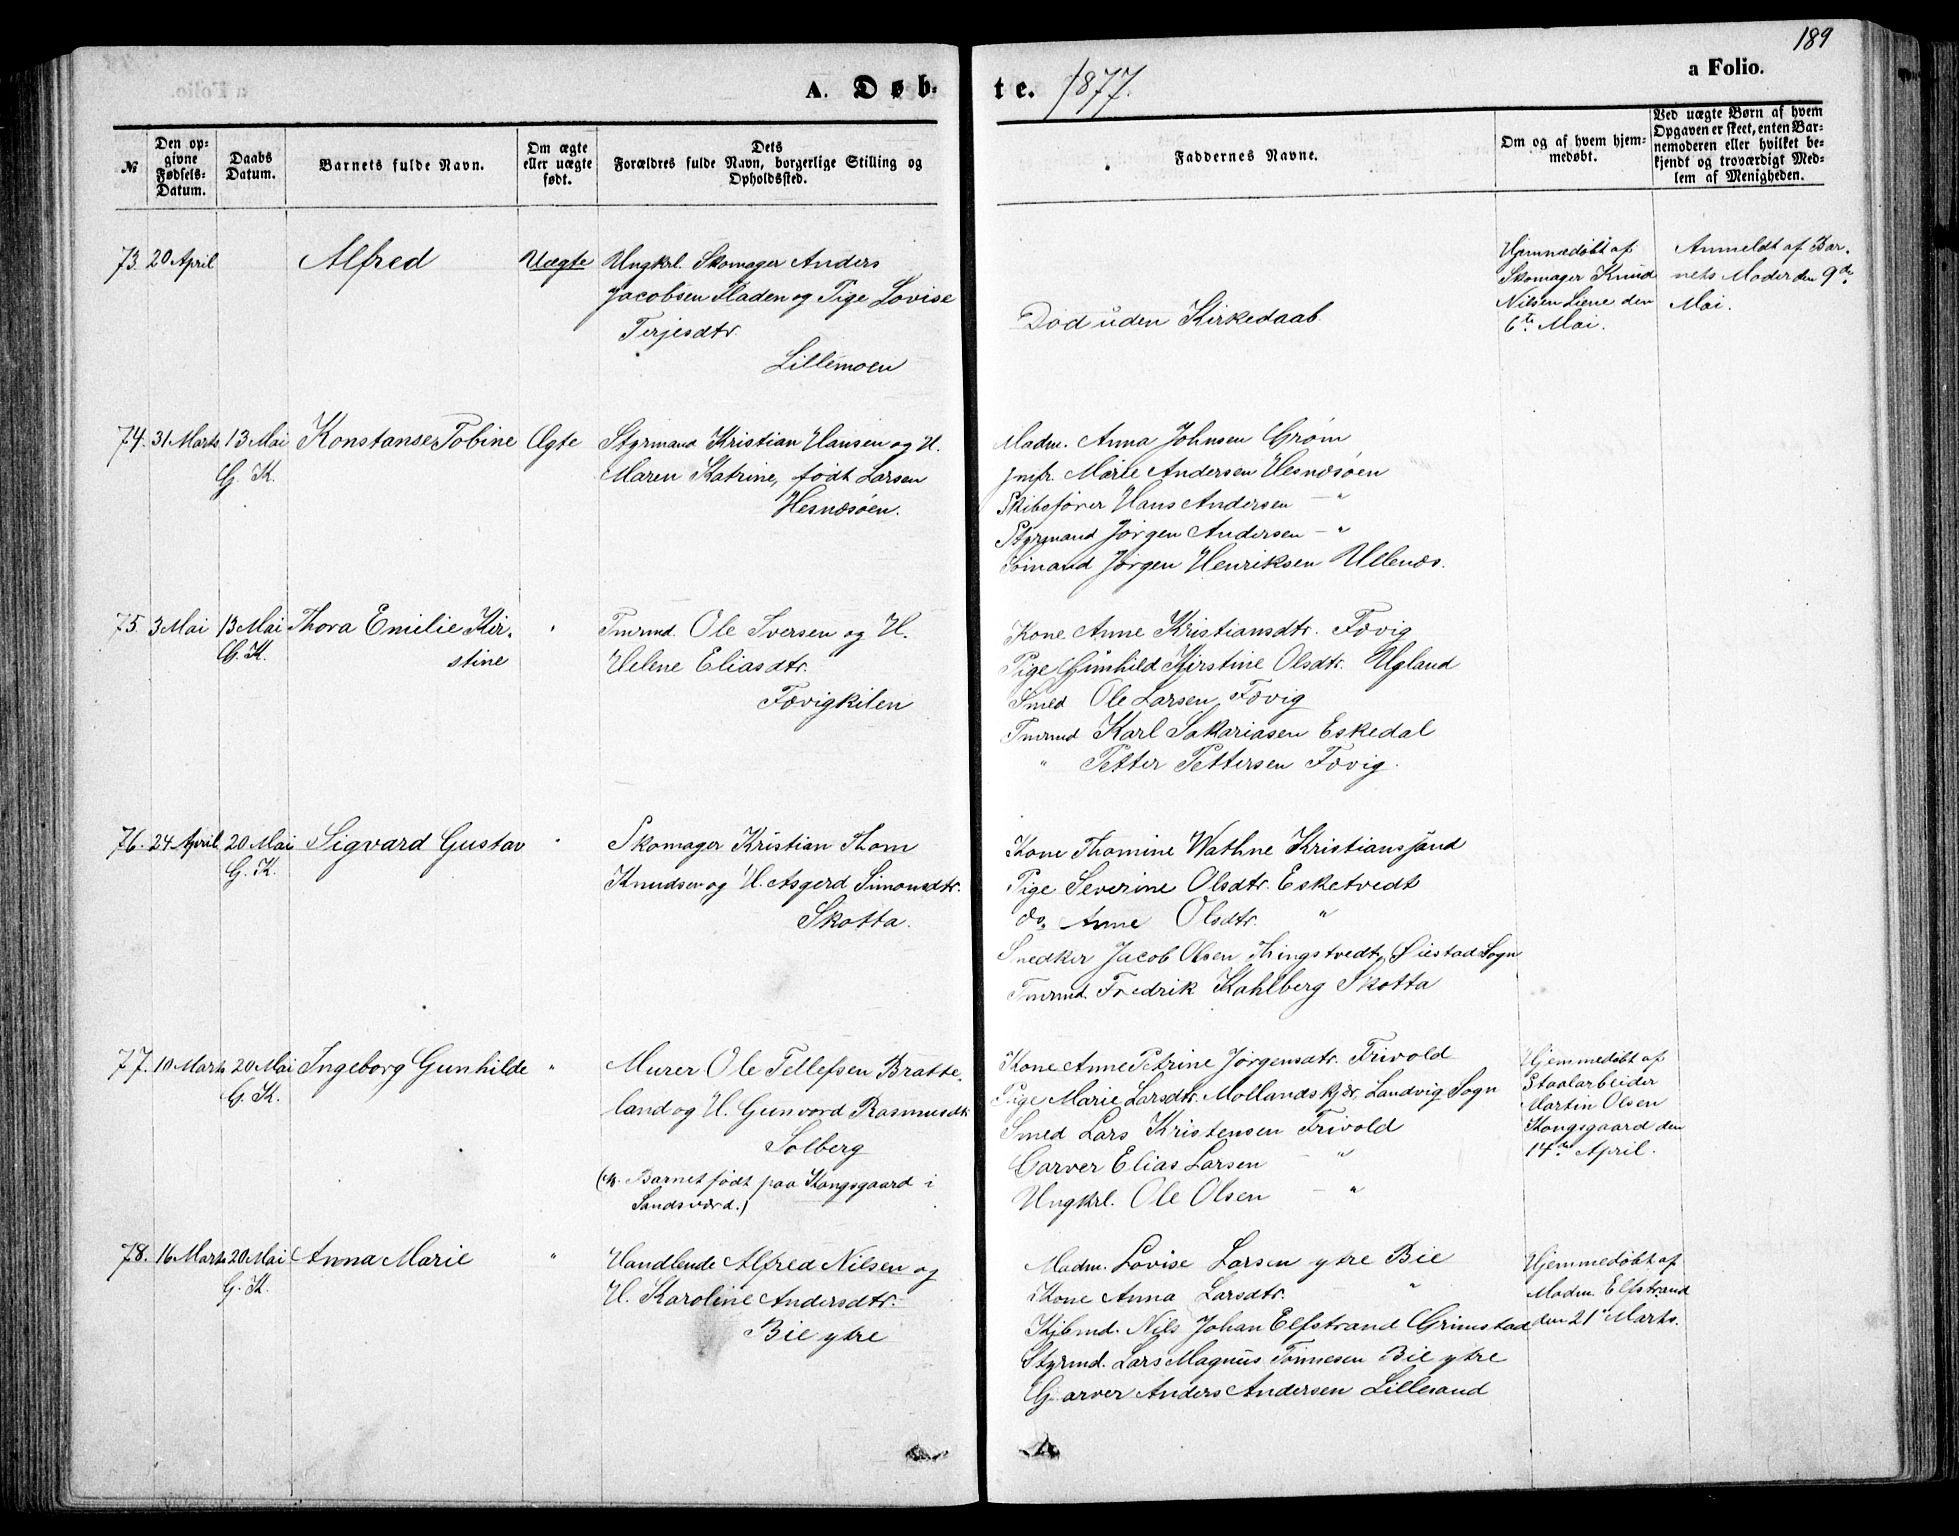 189
A. Døb-
te. 1877.
a Folio.
№
Den op-
givne
Fødsels-
Datum.
Daabs
Datum.
Barnets fulde Navn.
Om ægte
eller uægte
født.
Dets
Forældres fulde Navn, borgerlige Stilling og
Opholdssted.
Faddernes Navne.
Om og af hvem hjem-
medøbt.
Ved uægte Børn af hvem
Opgaven er skeet, enten Bar-
nemoderen eller hvilket be-
kjendt og troværdigt Med-
lem af Menigheden.
73. 20 April Alfred Uægte Ungkrl. Skomager Anders
Jacobsen Fladen og Pige Lovise
Terjesdtr.
Lillemoen
Død uden Kirkedaab.
Hjemmedøbt af
Skomager Knud
Nilsen Liene den
6te Mai.
Anmeldt af Bar-
nets Moder den 9de
Mai.
74. 31 Marts 13 Mai Konstanse Tobine Ægte Styrmand Kristian Hansen og H.
G. K. Maren Katrine, født Larsen
Hesnæsøen.
Madm. Anna Johnsen Grøm
Jmfr. Marie Andersen Hesnæsøen
Skibsfører Hans Andersen — "
Styrmand Jørgen Andersen — "
Sømand Jørgen Henriksen Ullenæs.
75. 3 Mai 13 Mai Thora Emilie Kir- " Tmrmd. Ole Iversen og H.
G. K. stine Helene Eliasdtr.
Fævigkilen
Kone Anne Kristiansdtr. Fævig
Pige Gunhild Kirstine Olsdtr. Ugland
Smed Ole Larsen Fævig
Tmrmd Karl Sakariasen Eskedal
" Petter Pettersen Fævig.
76. 24 April 20 Mai Sigvard Gustav " Skomager Kristian Thom
G. K. Knudsen og H. Asgerd Simonsdtr.
Skotta.
Kone Thomine Wathne Kristianssand
Pige Severine Olsdtr. Esketvedt
do. Anne Olsdtr. "
Snedker Jacob Olsen Thingstvedt, Øiestad Sogn
Tmrmd. Fredrik Kahlberg Skotta
77. 10 Marts 20 Mai Ingeborg Gunhilde " Murer Ole Tellefsen Bratte-
G. K. land og H. Gunvord Rasmusdtr
Solberg
Barnet født paa Kongsgaard i
Sandsværd.)
Kone Anne Petrine Jørgensdtr. Frivold
Pige Marie Larsdtr. Mollandskjær, Landvig Sogn
Smed Lars Kristensen Frivold
Garver Elias Larsen — "
Ungkrl. Ole Olsen — "
Hjemmedøbt af
Staalarbeider
Martin Olsen
Kongsgaard den
14de April.
78. 16 Marts 20 Mai Anna Marie " Handlende Alfred Nilsen og
G. K. H. Karoline Andersdtr.
Bie ytre
Madm. Lovise Larsen ytre Bie
Kone Anna Larsdtr. "
Skibmd. Nils Johan Elfstrand Grimstad
Styrmd. Lars Magnus Tønnesen Bie ytre
Garver Anders Andersen Lillesand
Hjemmedøbt af
Madm. Elfstrand
den 21 Marts.